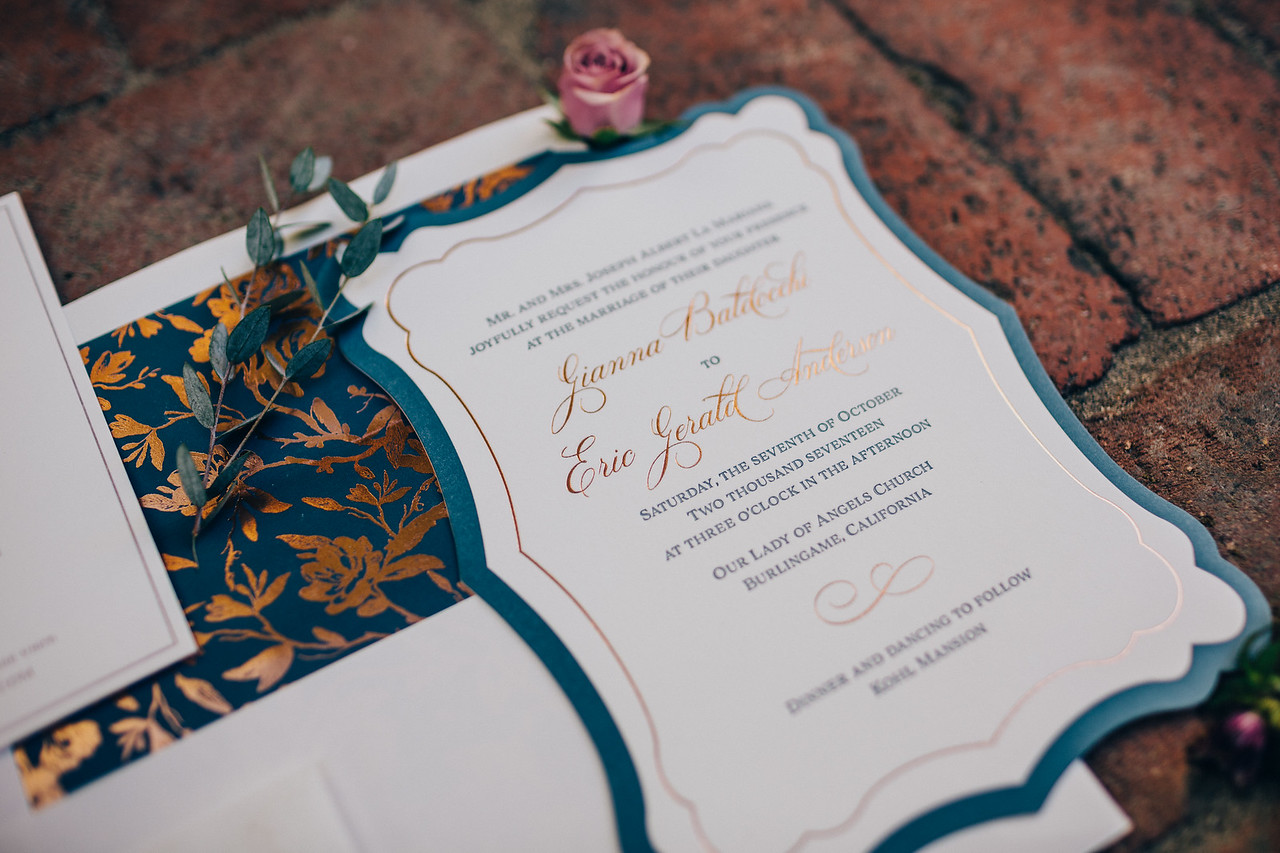 Mr. and Mrs. Joseph Albert La Mariana
joyfully request the honour of your presence
at the marriage of their daughter
Gianna Baldocchi
to
Eric Gerald Anderson
Saturday, the seventh of October
Two thousand seventeen
at three o'clock in the afternoon
Our Lady of Angels Church
Burlingame, California
Dinner and dancing to follow
Kohl Mansion